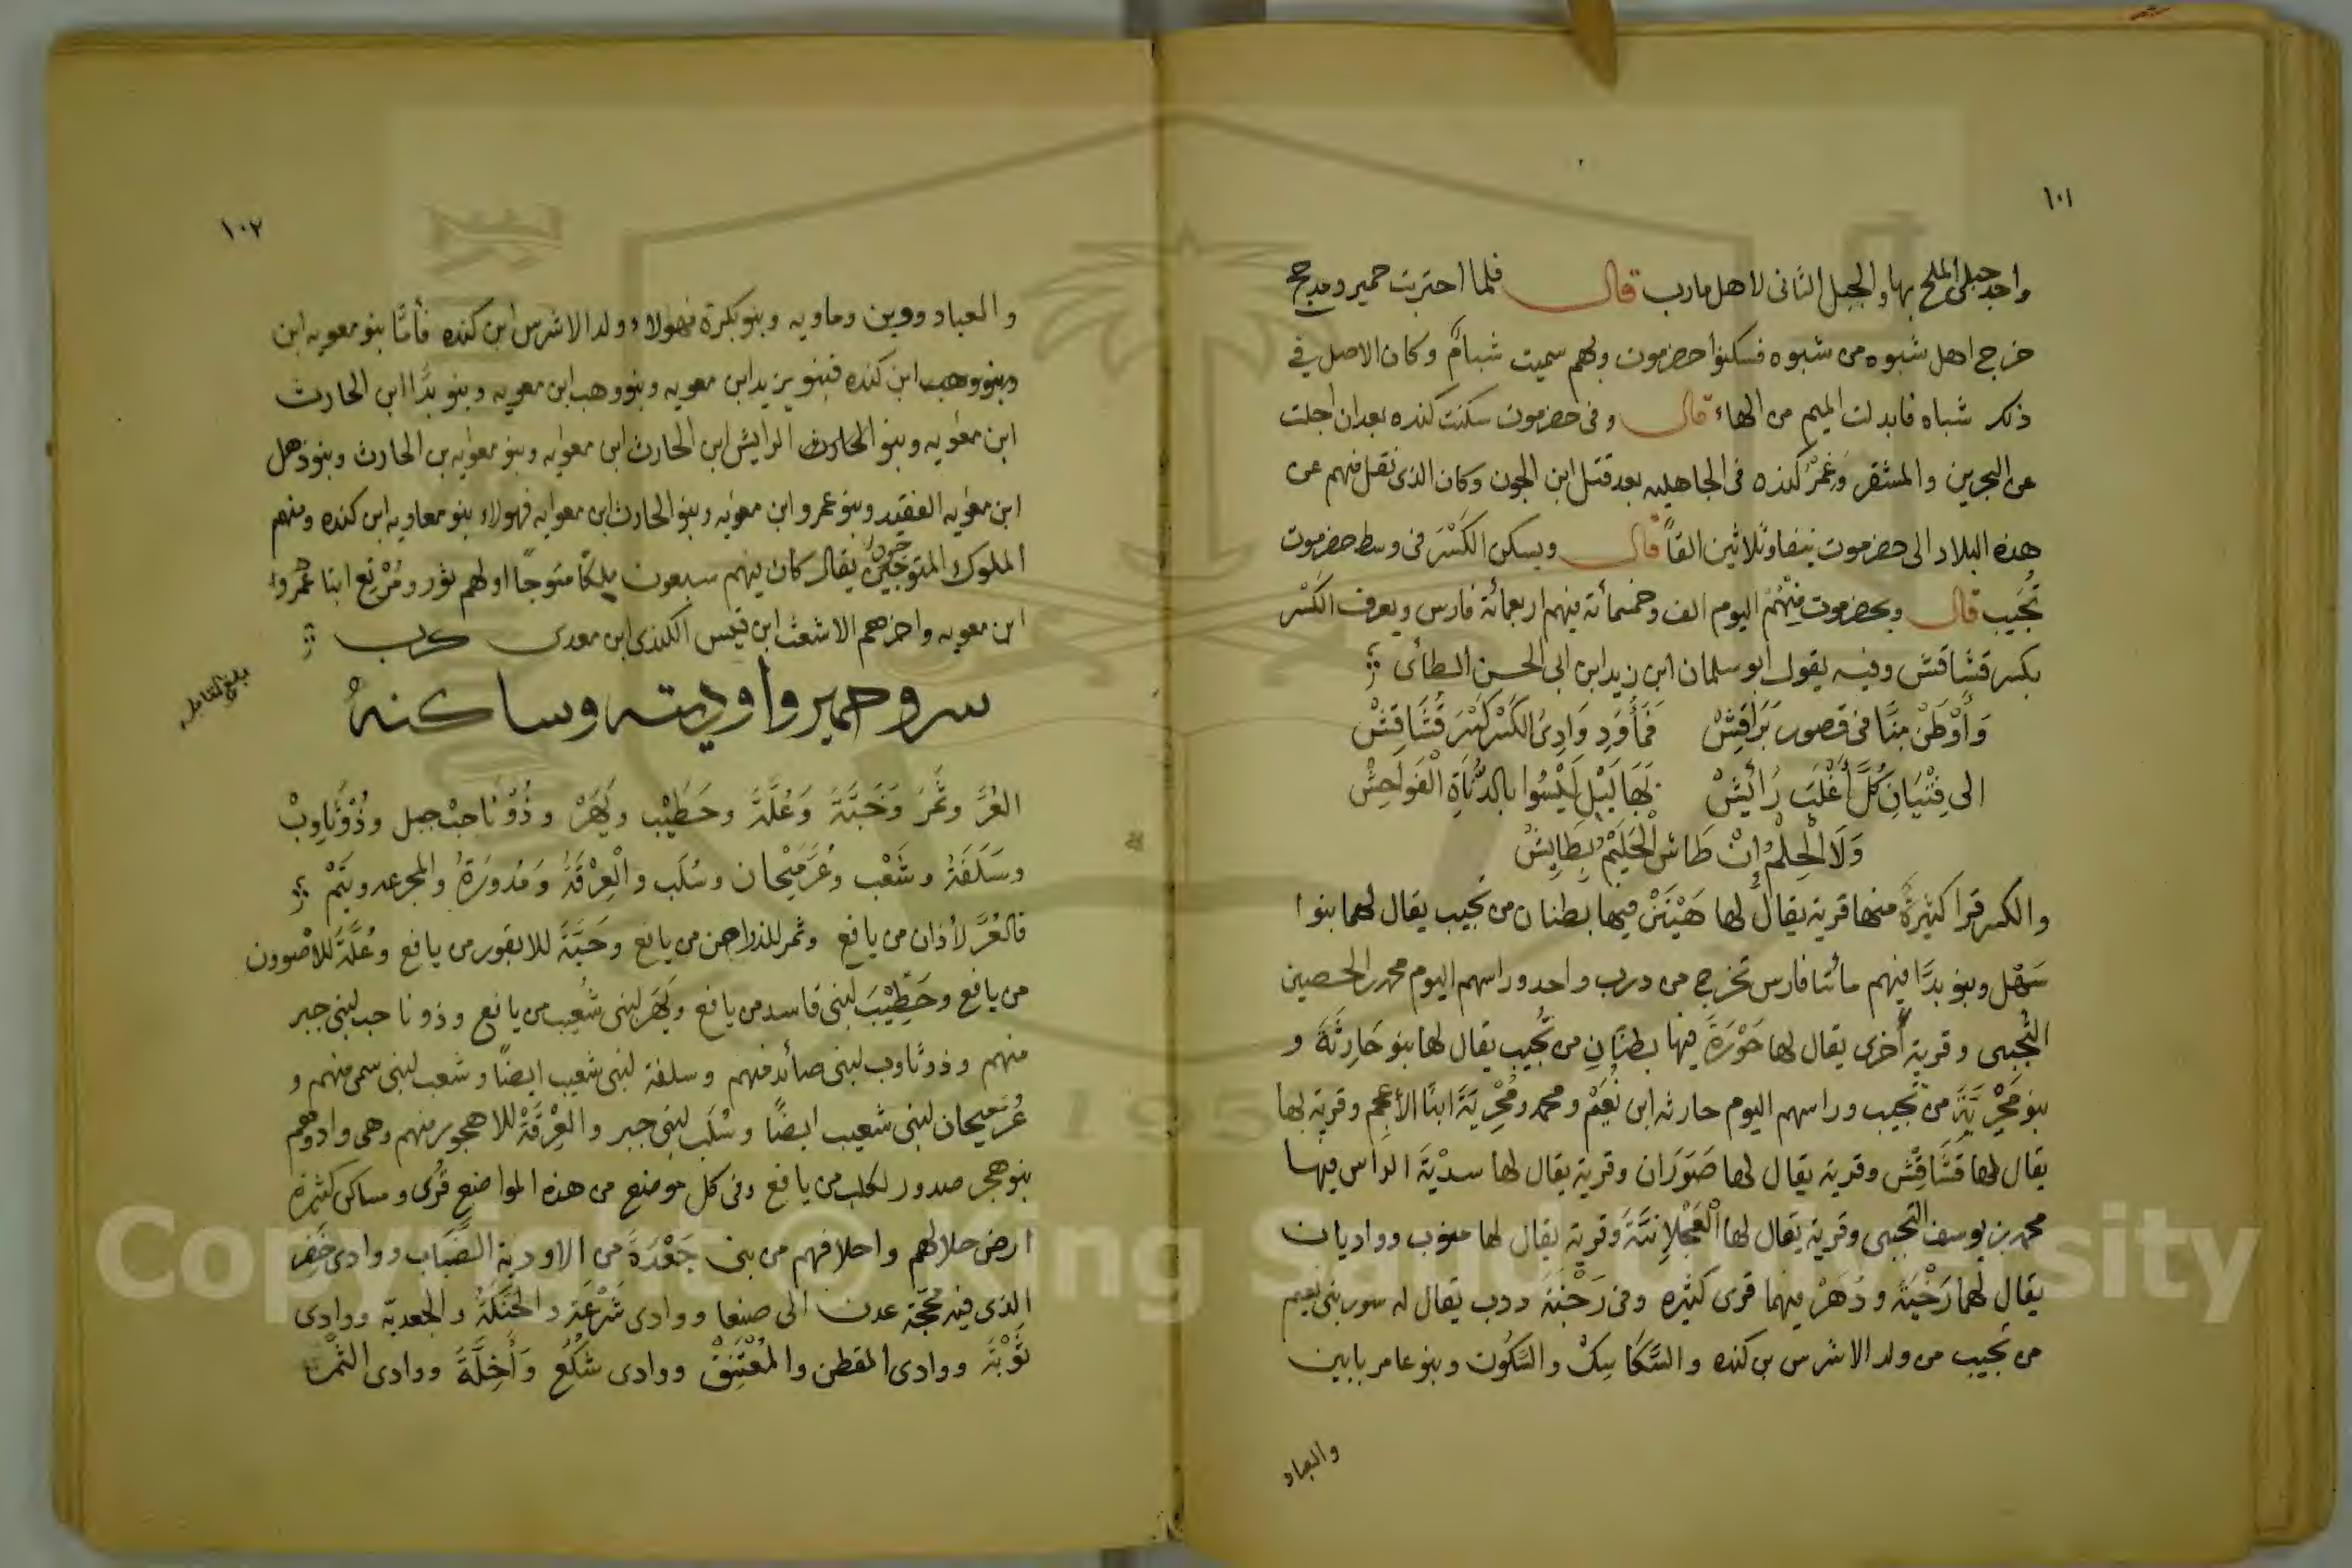 ١٠١
واحد جبلى الملح بها والجبل الثانى لاهل مارب قال فلما احتربت حمير ومدحج
خرج اهل شبوه من شبوه فسكنوا حضرموت وبهم سميت شبام وكان الاصل فى
ذلك شباه فابدلت الميم من الهاء قال وفى حضرموت سكنت كنده بعد ان اجلت
عن البحرين والمشقر وغمر كنده فى الجاهليه بعد قتل ابن الجون وكان الذى نقل منهم عن
هذه البلاد الى حضرموت نيفا وثلاثين الفاً قال ويسكن الكَسْرَ فى وسط حضرموت
تُجيب قال وبحضرموت مِنْهُمُ اليوم الف وخمسمائة فيهم اربعمائة فارس ويعرف الكَسْر
بكسر قشاقش وفيه يقول ابو سلمان ابن زيد ابن ابى الحسن الطائى
وَأَوْطَنَ مِنَّا فى قصور بَرَاقِشْ فَمَأْوَدِ وَادِىْ الكَسْر كَسْرَ قُشَاقِشْ
الى فِتْيَانِ كُلَّ أَغْلَبَ رَائِشْ بَهَا لَيْل لَيْسُوا بالدُّنَاةِ الْفَوَاحِشْ
وَلَا الْحِلْمُ إِنْ طَاشَ الْحَلِيْمُ بِطَايِشْ
والكسر قرا كثيرةً منها قرية يقال لها هَيْنَنْ فيها بطنان من تجيب يقال لهما بنوا
سَهْل وبنو بدَّا فيهم مائتا فارس تخرج من درب واحد وراسهم اليوم محمد بن الحصين
التُّجيبى وقرية أُخرى يقال لها حَوْرَةَ فيها بطنَانِ من تُجيب يقال لها بنو حَارِثَةَ و
بنو مَحْرِيَّةَ من تُجيب وراسهم اليوم حارثه ابن نُعَيْم ومحمد ومُحْرِيَةَ ابنَا الأعْجَم وقرية لها
يقال لها قَشَاقِشْ وقرية يقال لها صَوَرَان وقرية يقال لها سدْيَة الراس فيها
محمد بن يوسف التجيبى وقرية يقال لها الْعَجْلَانِيَّةَ وقرية يقال لها منوب وواديان
يقال لهما رَخْيَةَ ودُهْرْ فيهما قرى كثيره وفى رَخْيَةَ درب يقال له سور بنى نعيم
من تُجيب من ولد الاشرس بن كنده والسَّكَاسِكْ والسَّكُونْ وبنو عامر بابين
والعباد
١٠٢
والعباد ووين وماويه وبنو بكرة فهولاء ولد الاشرس ابن كنده فأمَّا بنو معويه ابن
وبنو وهب ابن كنده فبنو يزيد ابن معويه وبنو وهب ابن معويه وبنو بدَّا ابن الحارث
ابن معويه وبنو الحارث الرايش ابن الحارث ابن معويه وبنو معويه بن الحارث وبنو ذهل
ابن معويه الفقيد وبنو عمرو ابن معويه وبنو الحارث ابن معويه فهولاء بنو معاويه ابن كنده ومنهم
الملوك المتوجين يقال كان فيهم سبعون ملكاً متوجاً اولهم ثور ومُرْتِع ابنا عمرو
ابن معويه واخرهم الاشعث ابن قيس الكندى ابن معدى كرب
سرو حمير واوديته وساكنهُ
العُرَّ وثَمَرَ وحَبَّةَ وَعُلَّةَ وحَطِيْب ويَهَرْ وذُوْ نَاخبْ جبل وذُوْ ثَاوِبْ
وسَلَفَةُ وشَعْب وعُرَمَيْحان وسُلَب والْعِرْقَةُ ومَدُورَةُ والمجرعه وبَتَمْ
فالعُرَّ لأذان من يافع وثمر للذراحن من يافع وحَبَّةَ للابقور من يافع وعُلَّةَ للاصوون
من يافع وحَطِيْبَ لبنى قاسد من يافع ويَهَر لبنى شعيب من يافع وذو ناخب لبنى جبر
منهم وذو ثاوب لبنى صائد منهم وسلفة لبنى شعيب ايضاً وشعب لبنى سمى منهم و
عُرَمَيحان لبنى شعيب ايضاً وسُلَب لبنى جبر والعِرْقَةْ للاهجور منهم وهى واد وهم
بنو هجر صدور لكلب من يافع وفى كل موضع من هذه المواضع قُرى ومساكن كثيرة
ارض حلالهم واحلافهم من بنى جَعْدَةَ من الاودية الضَّبَاب ووادى خَضِر
الذى فيه مَحَجَّة عدن الى صنعا ووادى شَرْعَة والحَنَكَةُ والجعديّة ووادى
ثَوْبَةَ ووادى المقطن والمُعْتَنِقْ ووادى شُكُعْ وَأَخِلَّةَ ووادى الثَّمَر